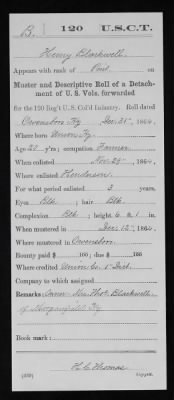 B. 120 U.S.C.T.
Henry Blackwell
Appears with rank of Pvt. on
Muster and Descriptive Roll of a Detach-
ment of U. S. Vols. forwarded
for the 120 Reg't U.S. Col'd Infantry. Roll dated
Owensboro Ky Dec. 31, 1864.
Where born Union Ky.
Age 20 y'rs; occupation Farmer
When enlisted Nov. 28, 1864.
Where enlisted Henderson.
For what period enlisted 3 years.
Eyes Blk.; hair Blk.
Complexion Blk; height 6 ft. 1 in.
When mustered in Dec. 12, 1864.
Where mustered in Owensboro.
Bounty paid $ 100; due $ 100
Where credited Union Co. 1st Dist.
Company to which assigned
Remarks: Owner Mrs. Blackwell
of Morganfield Ky
Book mark:
H. C. Thomas
(339) Copyist.